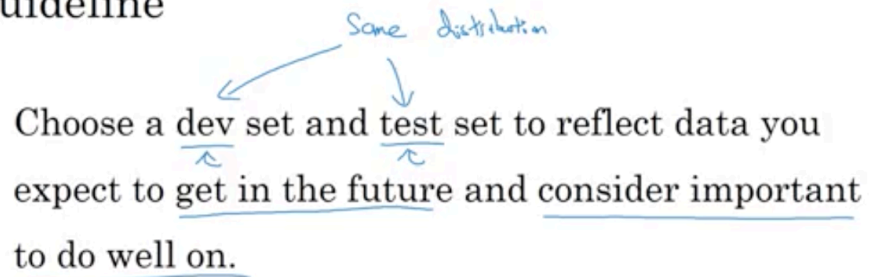 uideline
Same distribution
Choose a dev set and test set to reflect data you
expect to get in the future and consider important
to do well on.